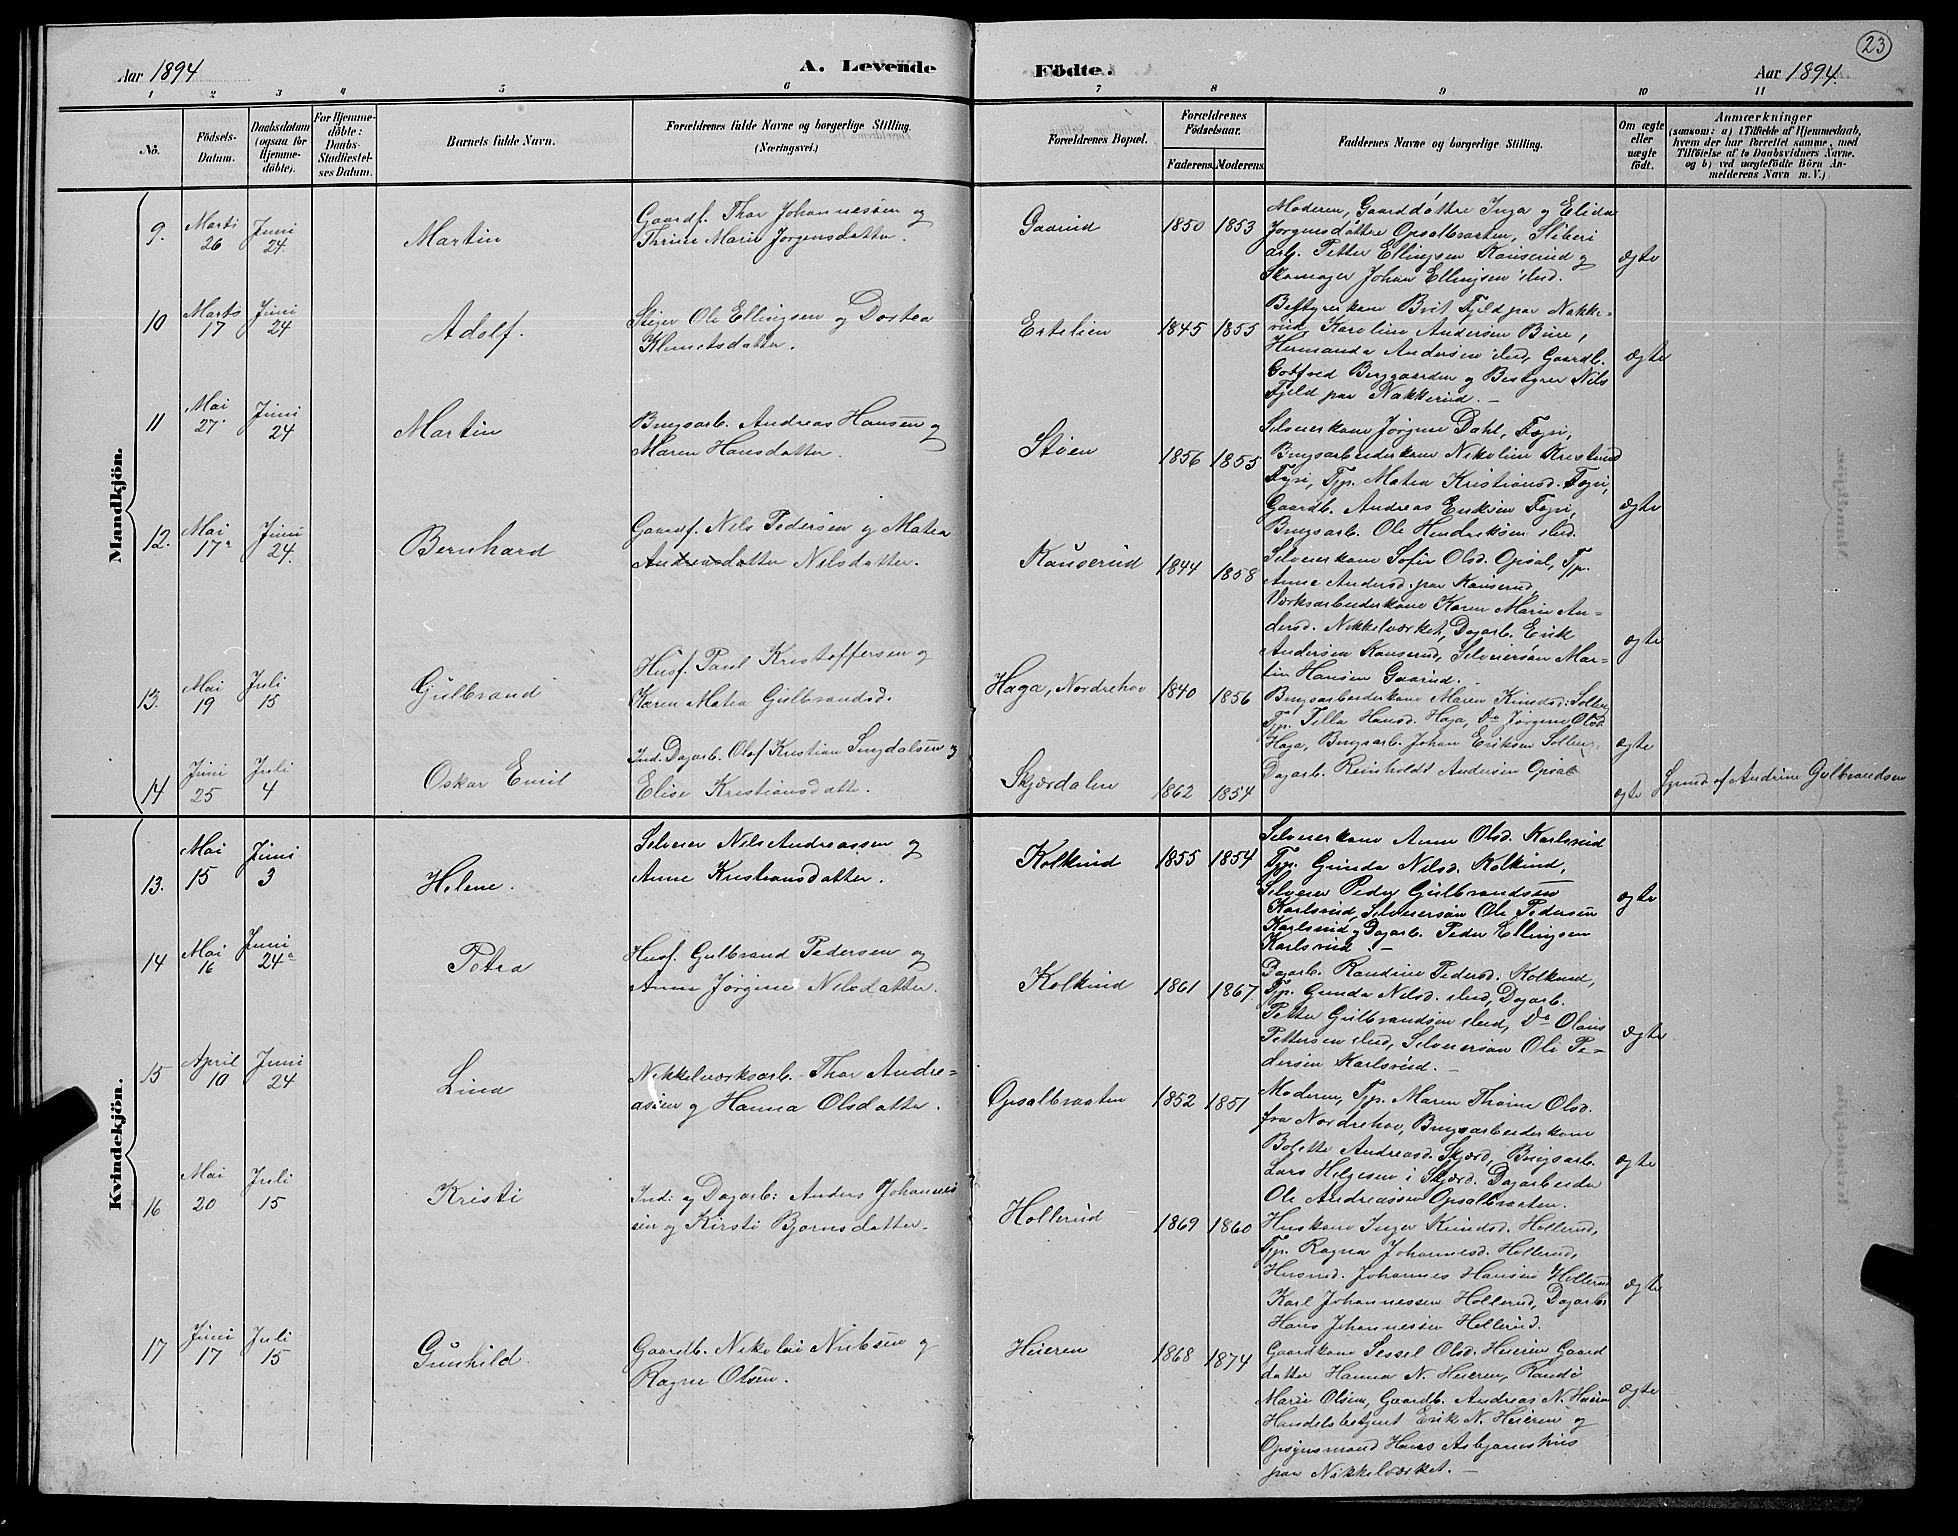 23
Aar 1894
A. Levende
Fødte.
Aar 1894.
1 2 3 4 5 6 7 8 9 10 11
No.
Fødsels-
Datum.
Daabsdatum
(ogsaa for
Hjemme-
døbte).
For Hjemme-
døbte:
Daabs-
Stadfæstel-
ses Datum.
Barnets fulde Navn.
Forældrenes fulde Navne og borgerlige Stilling.
(Næringsvei.)
Forældrenes Bopæl.
Forældrenes
Fødselsaar.
Faderens. Moderens.
Faddernes Navne og borgerlige Stilling.
Om ægte
eller
uægte
født.
Anmærkninger
(saasom: a) i Tilfælde af Hjemmedaab,
hvem der har forrettet samme, med
Tilføielse af to Daabsvidners Navne.
og b) ved uægtefødte Børn An-
melderens Navn m. V.)
Mandkjön.
9.
Marts
26
Juni
24.
Martin
Gaardf. Thor Johannessen og
Thrine Marie Jørgensdatter.
Gaarud
1850 1853
Moderen, Gaarddøttre Inga og Elida
Jørgensdøttre Opsalbraaten, Sliberi
arb. Petter Ellingsen Kauserud og
Skomager Johan Ellingsen ibid.
ægte
10
Marts
17
Juni
24
Adolf.
Stiger Ole Ellingsen og Dortea
Klemetsdatter.
Ertelien
1845 1855
Bestyrerkone Brit Fjeld paa Nakke-
rud, Karoline Andersen Bure,
Hermanda Andersen ibid, Gaardb.
Gotfred Berggaarden og Bestyrer Nils
Fjeld paa Nakkerud. –
ægte
11
Mai
27.
Juni
24
Martin
Brugsarb. Andreas Hansen og
Maren Hansdatter.
Støen
1856 1855
Selveierkone Jørgine Dahl, Fegri,
Brugsarbeiderkone Nikoline Kristrud
Fegri, Tjp. Matea Kristiansd. Fegri,
Gaardb. Andreas Eriksen Fegri,
Brugsarb. Ole Hendriksen ibid.
ægte
12.
Mai
17
Juni
24.
Bernhard
Gaardf. Nils Pedersen og Matea
Andreasdatter Nilsdatter.
Kauserud
1844 1858
Selveierkone Sofie Olsd. Opsal, Tjp.
Anne Andersd. paa Kauserud,
Værksarbeiderkone Karen Marie An-
dersd. Nikkelværket, Dagarb. Erik
Andersen Kauserud, Selveiersøn Mar-
tin Hansen Gaarud.
ægte
13.
Mai
19
Juli
15
Gulbrand
Husf. Paul Kristoffersen og
Karen Matea Gulbrandsd.
Haga, Norderhov
1840 1856
Brugsarbeiderkone Maren Knudsd. Solberg
Tjp. Tella Hansd. Haga, Do Jørgine Olsd
Haga, Brugsarb. Johan Eriksen Solberg.
ægte
14
Juni
25
Juli
4
Oskar Emil
Ind. Dagarb. Olaf Kristian Sugdalsen og
Elise Kristiansdatter.
Skjærdalen
1862 1854
Dagarb. Reinholdt Andersen Opsal
ægte
af Andrine Gulbrandsen
Kvindekjön.
13.
Mai
15
Juni
3
Helene.
Selveier Nils Andreassen og
Anne Kristiansdatter.
Kolkind
1855 1854
Selveierkone Anne Olsd. Karlsrud
Tjp. Gunda Nilsd. Kolkind,
Selveier Peder Gulbrandsen
Karlsrud, Selveiersøn Ole Pedersen
Karlsrud og Dagarb. Peder Ellingsen
Karlsrud. –
ægte
14
Mai
16
Juni
24
Petra
Husf. Gulbrand Pedersen og
Anne Jørgine Nilsdatter.
Kolkind
1861 1867
Dagarb. Randine Pedersd. Kolkind,
Tjp. Gunda Nilsd. ibid, Dagarb.
Petter Gulbrandsen ibid, Do Olaus
Pettersen ibid, Selveiersøn Ole Pe-
dersen Karlsrud. –
ægte
15
April
10
Juni
24
Lina
Nikkelværksarb. Thor Andre-
asen og Hanna Olsdatter.
Opsalbraaten
1852 1851
Moderen, Tjp. Maren Thorine Olsd.
fra Norderhov, Brugsarbeiderkone
Bolette Andreasd. Skjærd, Brugsarb.
Lars Helgesen i Skjærd. Dagarbeider
Ole Andreassen Opsalbraaten.
ægte
16
Mai
20
Juli
15
Kristi
Ind. og Dagarb. Anders Johannes
sen og Kirsti Bjørnsdatter.
Hollerud
1869 1860
Huskone Inger Knudsd. Hollerud,
Tjp. Ragna Johannesd. Hollerud,
Husmd. Johannes Hansen Hollerud
Karl Johannessen Hollerud, Dagarb.
Hans Johannessen Hollerud.
ægte
17
Juni
17
Juli
15
Gunhild.
Gaardb. Nikolai Nielsen og
Ragne Olsen.
Heieren
1868 1874
Gaardkone Sessel Olsd. Heieren Gaard
datter Hanna N. Heieren, Randi
Marie Olsen, Gaardb. Andreas N. Heieren
Handelsbetjent Erik N. Heieren og
Opsynsmand Hans Asbjørnsen
paa Nikkelværket. –
ægte